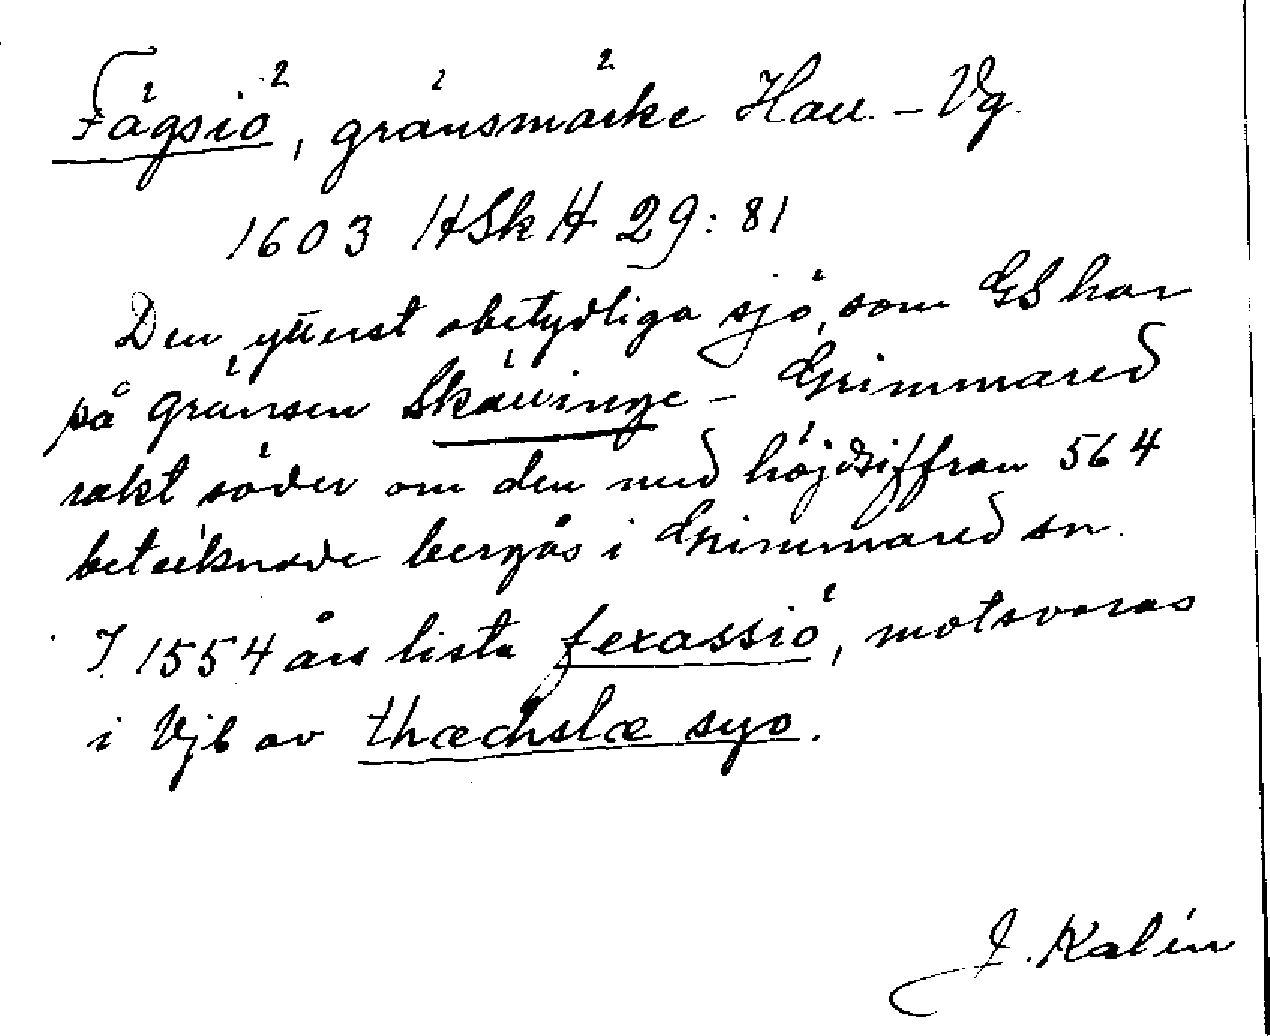 Fägsiö, gränsmärke Hall. – Vg.
1603 HSkH 29:81
Den, ytterst obetydliga sjö, som GS har
på gränsen Skällinge – Grimmared
rakt söder om den med höjdsiffran 564
betecknade bergås i Grimmared sn.
I 1554 års lista fexassiö, motsvaras
i Vjb av thæchslæ syo.
J. Kalén